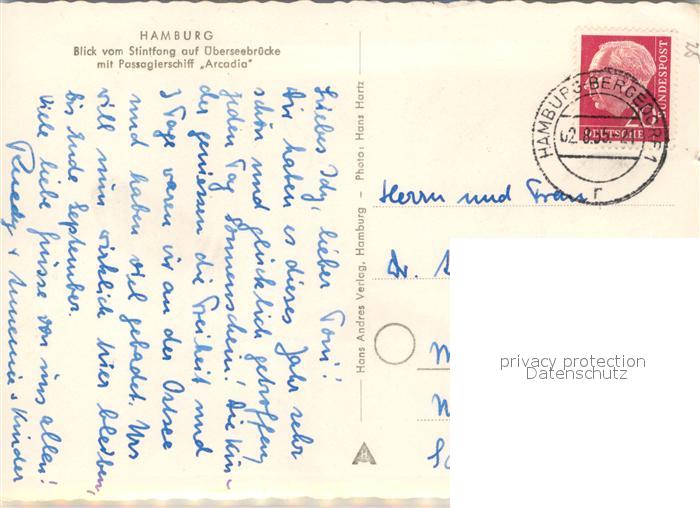 HAMBURG
Blick vom Stintfang auf Überseebrücke
mit Passagierschiff „Arcadia"
Liebes Idy, lieber Toni!
Wir haben es dieses Jahr sehr
schön und glücklich getroffen,
jeden Tag Sonnenschein! Die Kin-
der geniessen die Freiheit und
3 Tage waren wir an der Ostsee
und haben viel gebadet. Uns
will nun wirklich hier bleiben,
bis Ende September.
Viele liebe Grüsse von uns allen!
Ruedy + Annemie + Kinder
Hans Andres Verlag, Hamburg – Photo: Hans Hartz
DEUTSCHE
BUNDESPOST
20
HAMBURG-BERGEDORF 1
r
Herrn und Frau
Dr.
privacy protection
Datenschutz